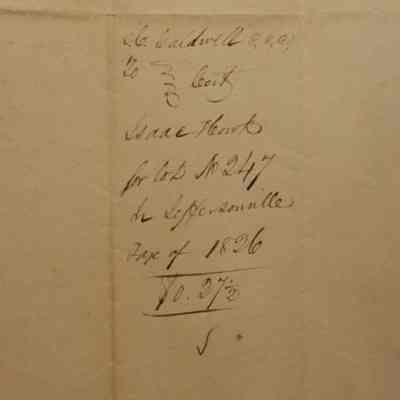 Caldwell C, C, C,
To } Cert,
Isaac Howk
for Lot No 247
In Jeffersonville
Tax of 1826
$0.27½
S